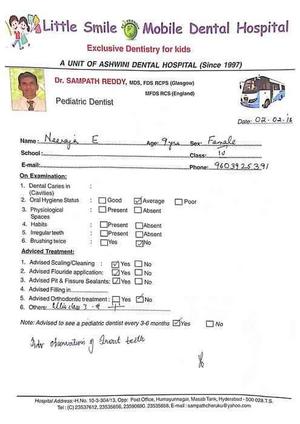 Little Smile Mobile Dental Hospital
Exclusive Dentistry for kids
A UNIT OF ASHWINI DENTAL HOSPITAL (Since 1997)
Dr. SAMPATH REDDY, MDS, FDS RCPS (Glasgow)
MFDS RCS (England)
Pediatric Dentist
Date: 02-02-18
Name: Neeraja E Age: 9 yrs Sex: Female
School: Class: IV
E-mail: Phone: 9603925391
On Examination:
1. Dental Caries in (Cavities) :
2. Oral Hygiene Status : Good Average Poor
3. Physiological Spaces : Present Absent
4. Habits : Present Absent
5. Irregular teeth : Present Absent
6. Brushing twice : Yes No
Adviced Treatment:
1. Advised Scaling/Cleaning : Yes No
2. Advised Flouride application: Yes No
3. Advised Pit & Fissure Sealants: Yes No
4. Advised Filling in
5. Advised Orthodontic treatment : Yes No
6. Others:
Note: Advised to see a pediatric dentist every 3-6 months Yes No
for observation of front teeth
Hospital Address:-H.No. 10-3-304/13, Opp: Post Office, Humayunnagar, Masab Tank, Hyderabad - 500 028.T.S.
Tel : (C) 23537612, 23535656, 23590690, 23535658, E-mail : sampathcheruku@yahoo.com